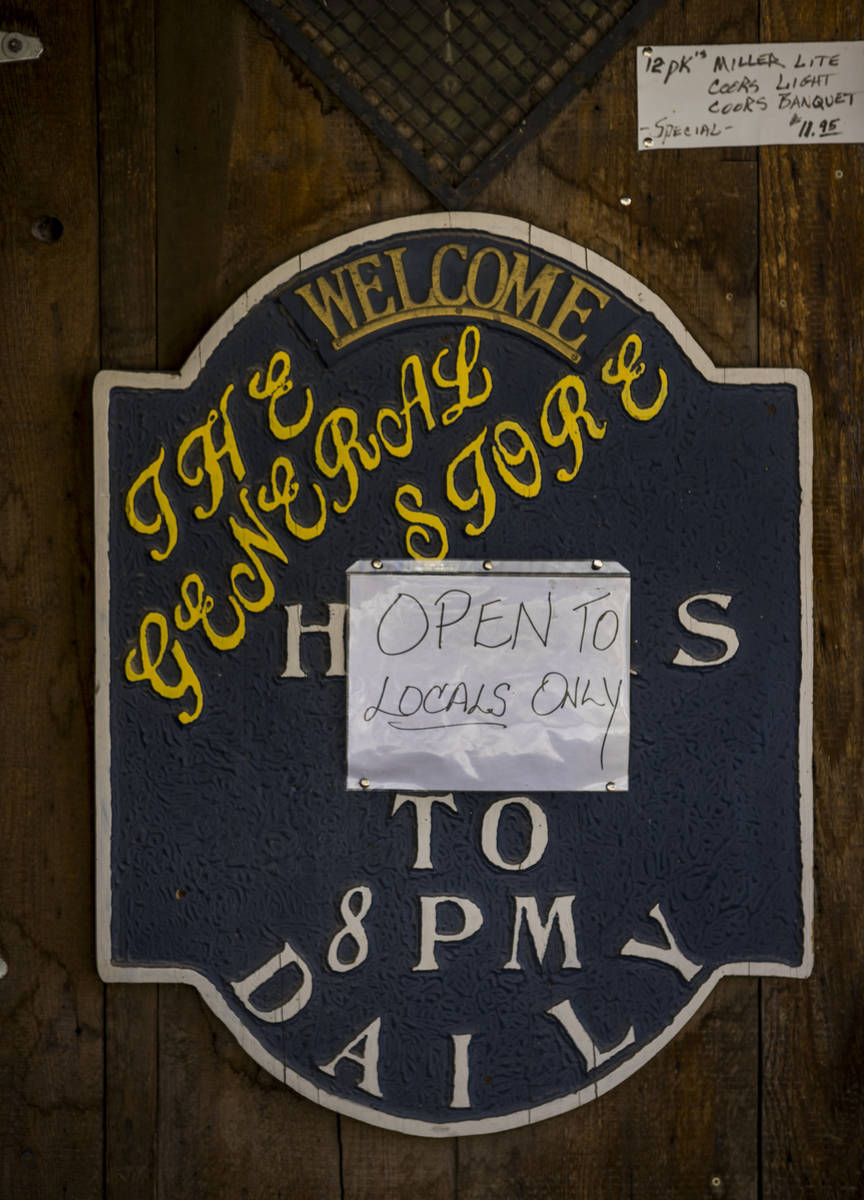 12pk's MILLER LITE
COORS LIGHT
COORS BANQUET
-SPECIAL- $11.95
WELCOME
THE
GENERAL
STORE
OPEN TO
LOCALS ONLY
TO
8 PM
DAILY